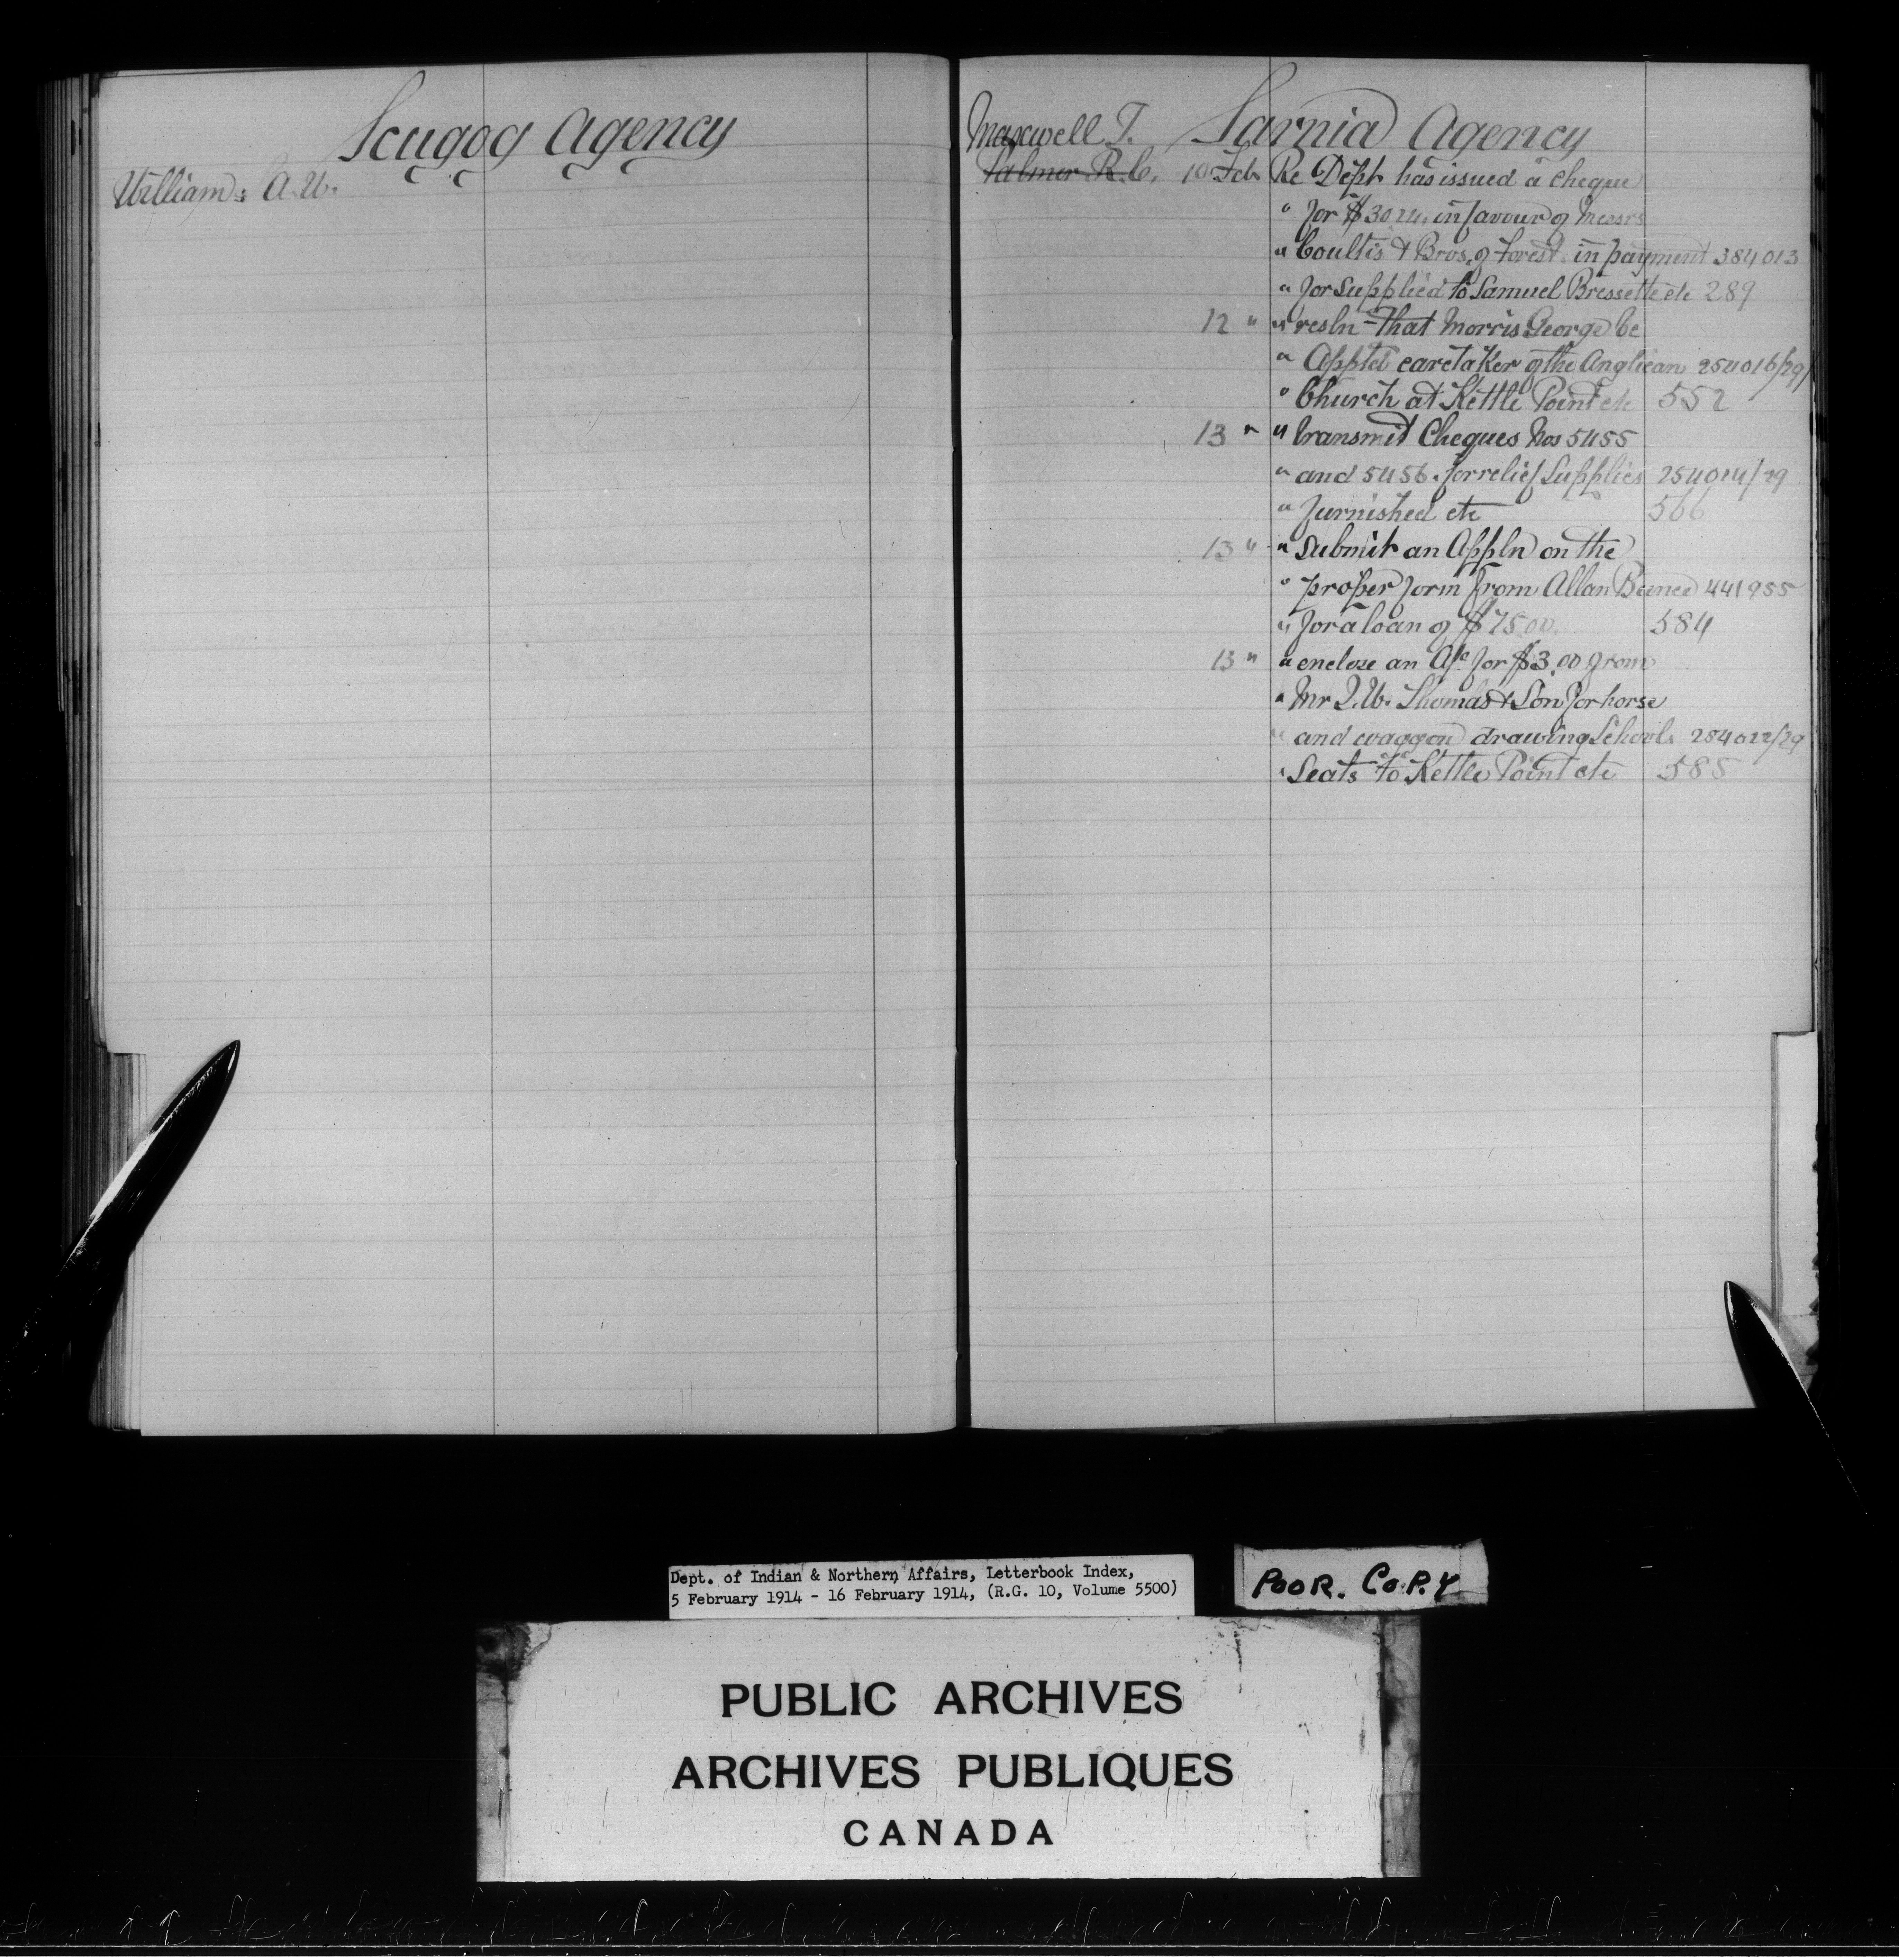 Scugog Agency
Williams A. W.
Maxwell T. Sarnia Agency
Palmer R. C. 10 Feb Re Dept has issued a cheque
" for $30 24 in favour of Messrs
" Coultis & Bros. of Forest in payment 384013
" for supplied to Samuel Bressette etc 289
12 " " resln That Morris George be
" Apptd caretaker of the Anglican 254016/29
" Church at Kettle Point etc 552
13 " " transmit Cheques Nos 5455
" and 5456. for relief Supplies 254014/29
" furnished etc 566
13 " " submit an Appln on the
" proper form from Allan 441955
" for a loan of $75.00. 584
13 " " enclose an A/c for $3.00 from
" Mr J. W. Thomas & Son for horse
" and waggon drawing Schools 254022/29
" Seats to Kettle Point etc 585
Dept. of Indian & Northern Affairs, Letterbook Index,
5 February 1914 - 16 February 1914, (R.G. 10, Volume 5500)
POOR. COPY
PUBLIC ARCHIVES
ARCHIVES PUBLIQUES
CANADA